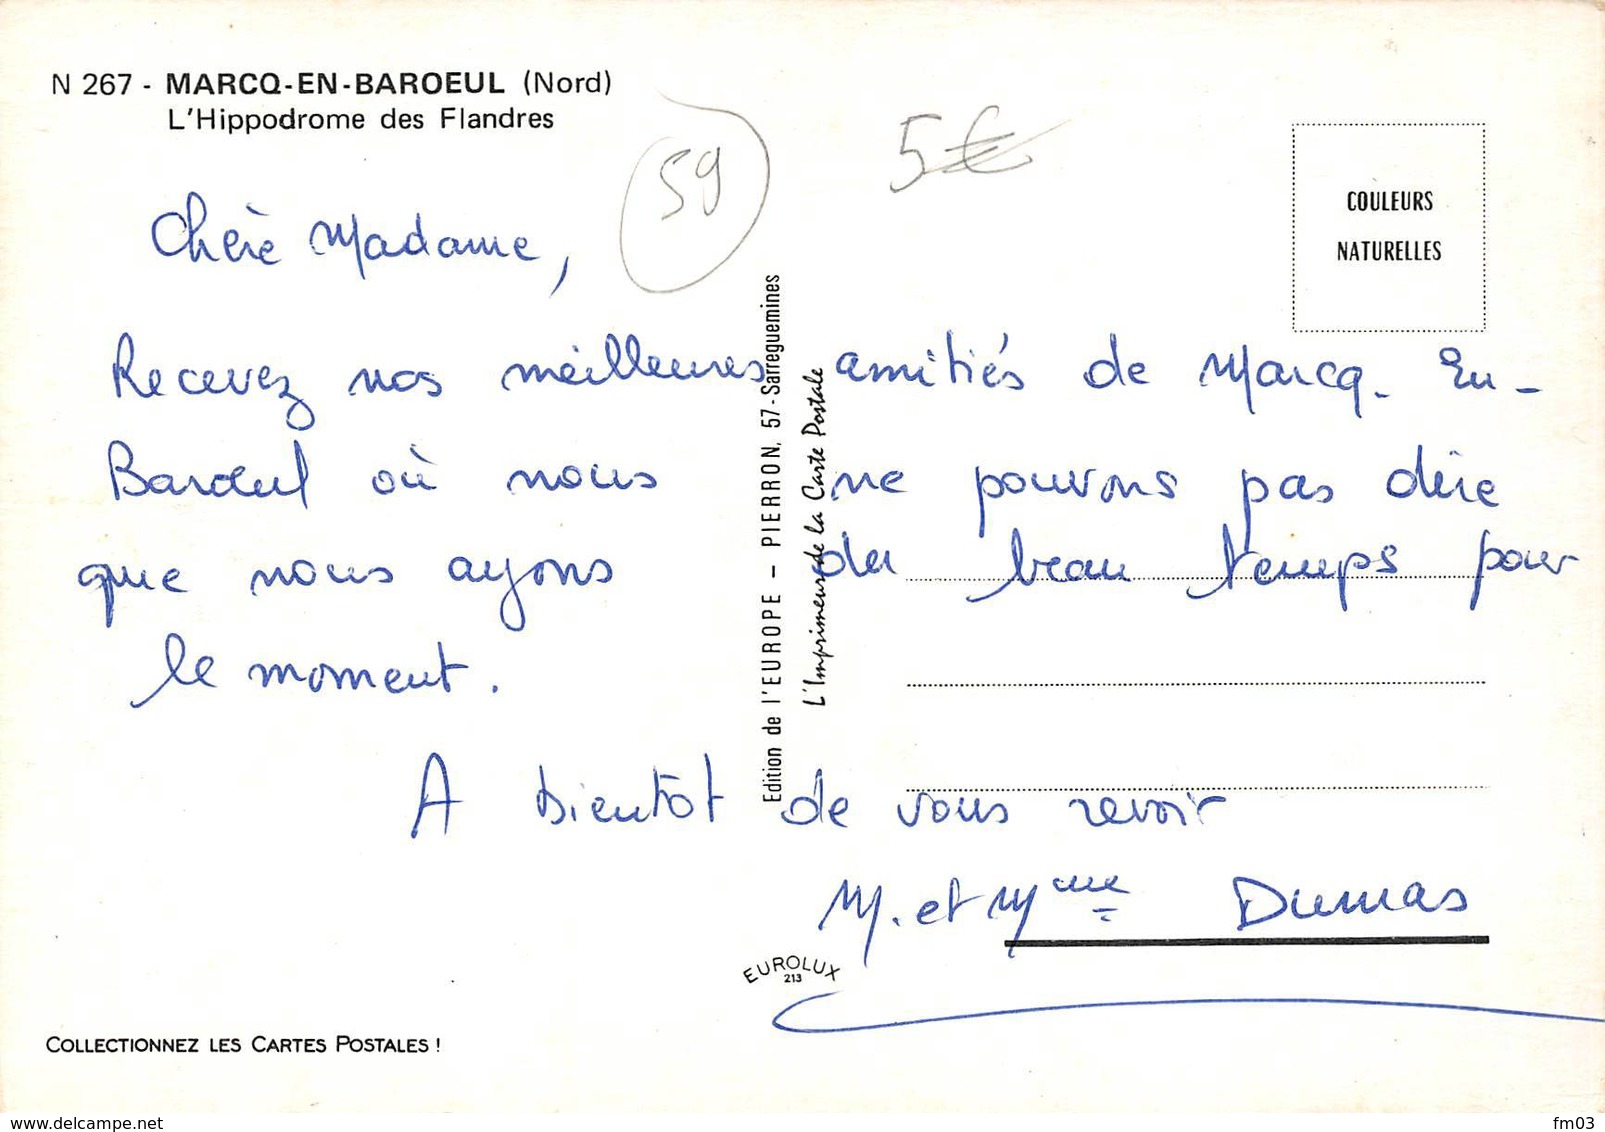 N 267 - MARCQ-EN-BAROEUL (Nord)
L'Hippodrome des Flandres
59
5€
COULEURS
NATURELLES
Chère Madame,
Recevez nos meilleures amitiés de Marcq-En-
Baroeul où nous ne pouvons pas dire
que nous ayons du beau temps pour
le moment.
A bientôt de vous revoir
M. et Mme Dumas
Edition de l'EUROPE – PIERRON, 57 - Sarreguemines
L'Imprimeur de la Carte Postale
EUROLUX
213
COLLECTIONNEZ LES CARTES POSTALES !
www.delcampe.net
fm03